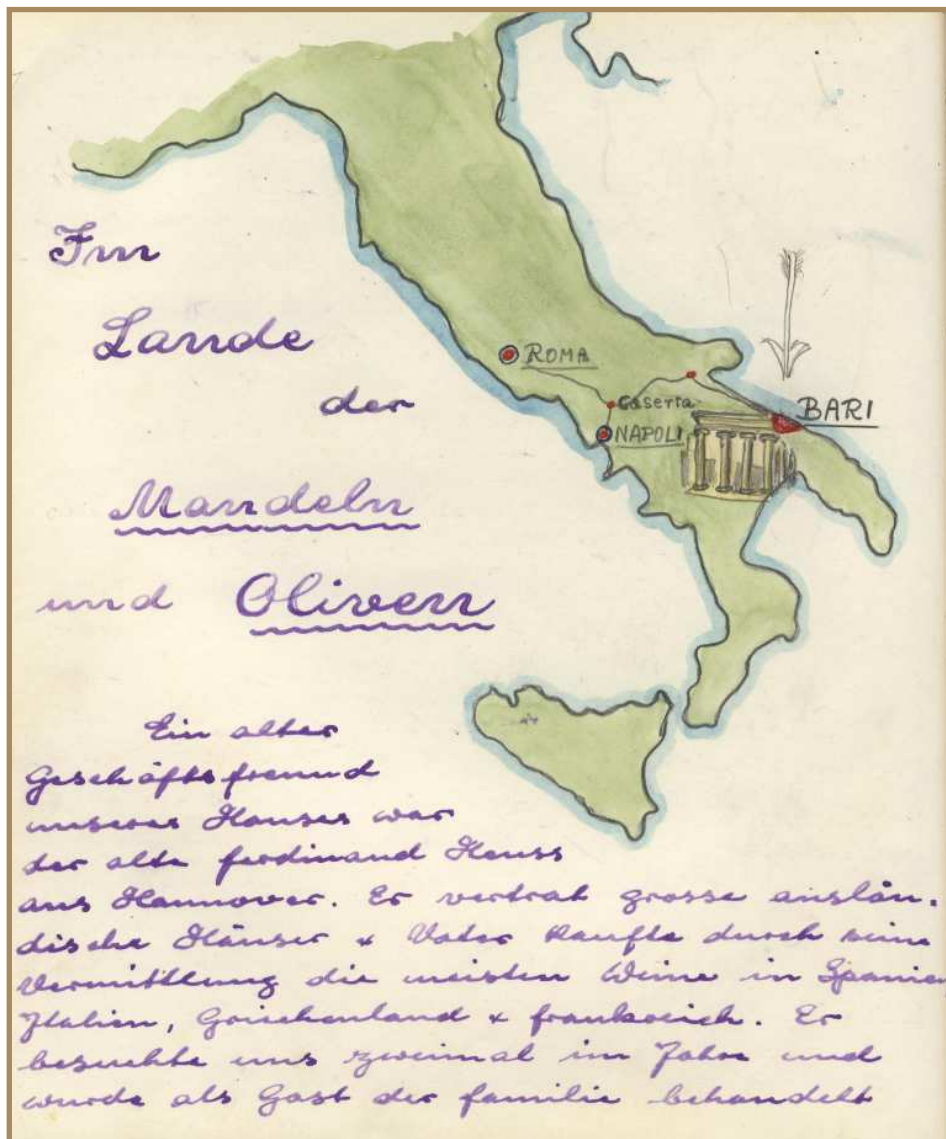 Im
Lande
der
Mandeln
und Oliven
ROMA
Caserta
NAPOLI
BARI
Ein alter
Geschäftsfreund
unseres Hauses war
der alte Ferdinand Heuss
aus Hannover. Er vertrat grosse auslän-
dische Häuser & Vater kaufte durch seine
Vermittlung die meisten Weine in Spanien
Italien, Griechenland & Frankreich. Er
besuchte uns zweimal im Jahre und
wurde als Gast der Familie behandelt